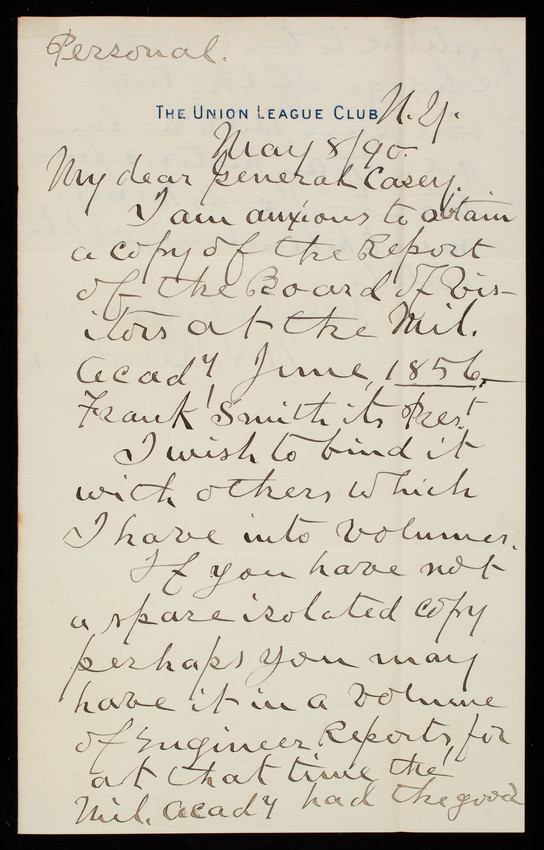 Personal.
THE UNION LEAGUE CLUB N.Y.
May 8/90.
My dear General Casey,
I am anxious to obtain
a copy of the Report
of the Board of Vis-
itors at the Mil.
Acady, June, 1856,—
Frank' Smith its Prest
I wish to bind it
with others which
I have into volumes.
If you have not
a spare isolated copy
perhaps you may
have it in a volume
of Engineer Reports, for
at that time the
Mil. Acady had the good